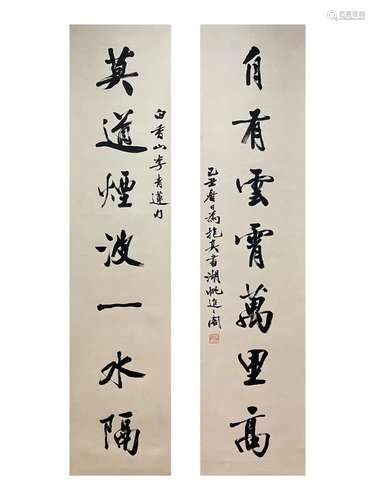 自有雲霄萬里高
己丑春日為抱真書湖帆
白香山李青蓮句
莫道煙波一水隔